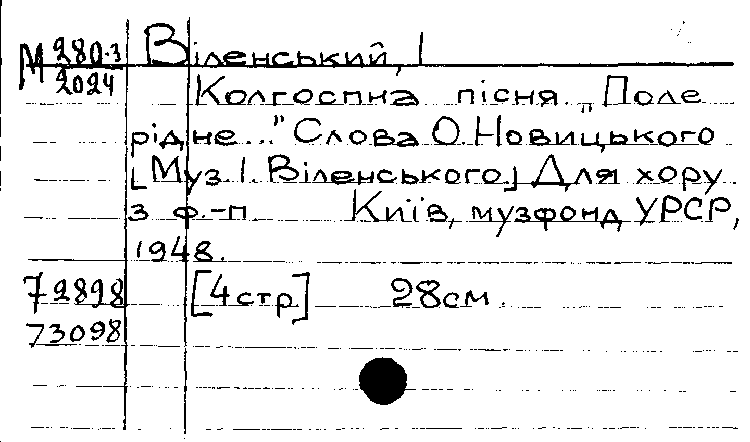 М 280-3
2024
Віленський, І
Колгоспна пісня „Поле
рідне..." Слова О. Новицького
[Муз. І. Віленського] Для хору
з ф.-п. Київ, музфонд УРСР,
1948.
72898 [4 стр] 28см.
73098